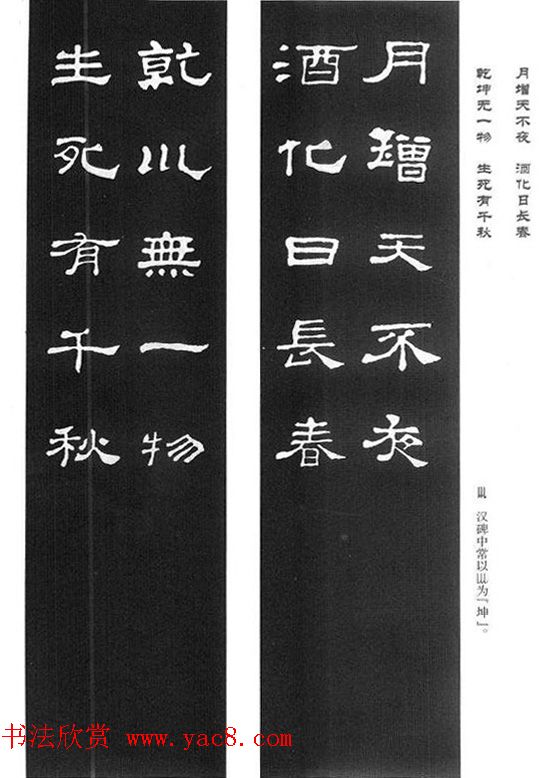 月增天不夜
酒化日长春
乾坤无一物
生死有千秋
月增天不夜
酒化日長春
乾巛無一物
生死有千秋
巛 汉碑中常以巛为「坤」。
书法欣赏 www.yac8.com